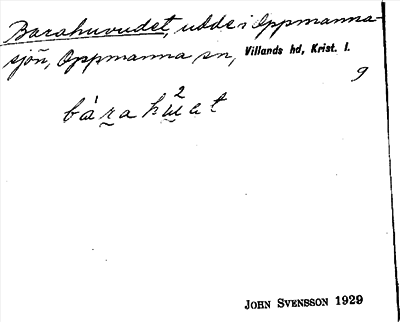 Barahuvudet, udde i Oppmanna-
sjön, Oppmanna sn, Villands hd, Krist. l.
9
2
bàrahɯ̭et
JOHN SVENSSON 1929